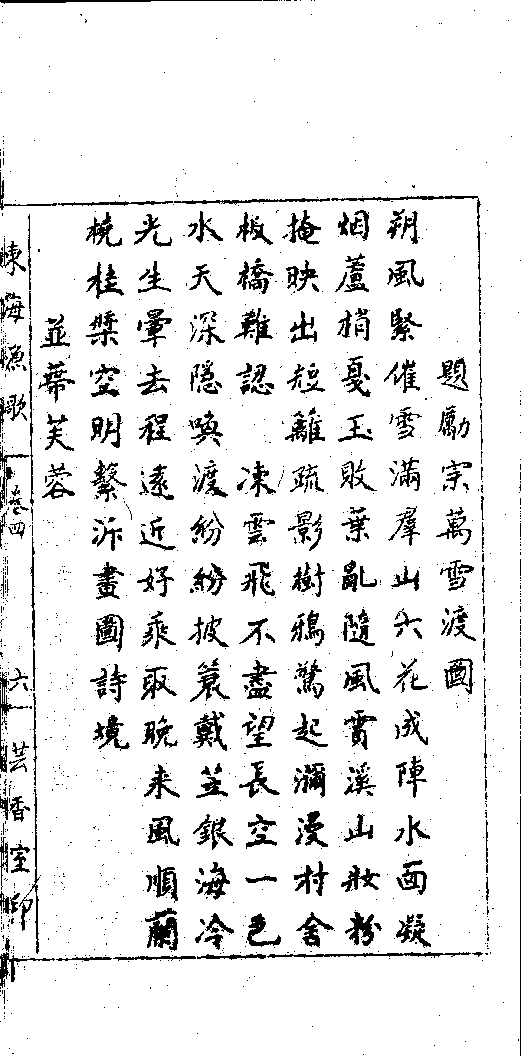 題勵宗萬雪渡圖
朔風緊催雪滿羣山六花成陣水面凝
烟蘆梢戛玉敗葉亂隨風霣溪山妝粉
掩映出短籬疏影樹鴉驚起瀰漫村舍
板橋難認　凍雲飛不盡望長空一色
水天深隱喚渡紛紛披蓑戴笠銀海冷
光生暈去程遠近好乘取晚来風順蘭
橈桂槳空明繫泝畫圖詩境
並蒂芙蓉
東海漁歌　卷四　六　芸香室